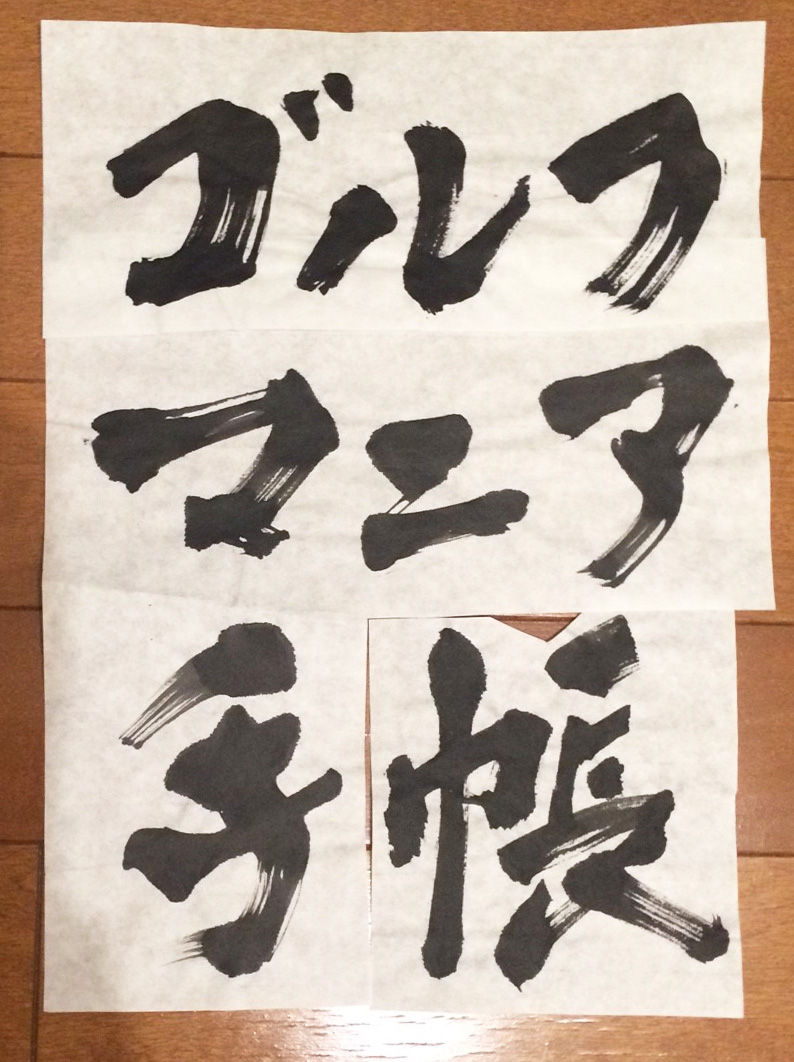 ゴルフ
マニア
手帳